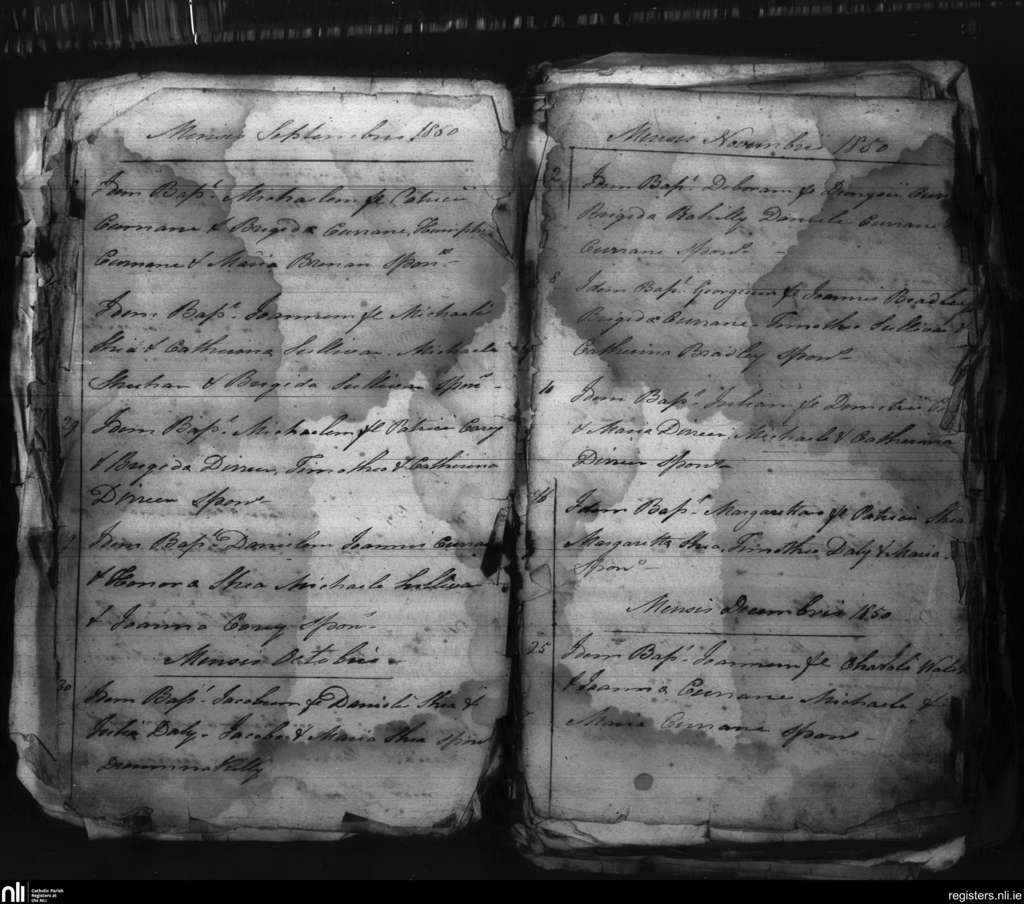 Mensis Septembris 1850
Idem Bapt. Michaelem fl Patricii
Currane & Brigida Currane, Humphr
Currane & Maria Brenan Spon.r
Idem Bapt. Joannem fl Michaelis
Shea & Catherina Sullivan, Michaele
Sheehan & Brigida Sullivan Spon.r
29 Idem Bapt. Michaelem fl Patricii Carey
& Brigida Dineen, Timotheo & Catherina
Dineen Spon.r
Idem Bapt. Danielem Joannis Curra
& Honora Shea Michaele Sullivan
& Joanna Carey Spon.r
Mensis Octobris
30 Idem Bapt. Jacobum fl Danielis Shea &
Julia Daly. Jacobo & Maria Shea Spon.r
Drumnakilly
Mensis Novembris 1850
2 Idem Bapt. Deboram fl
Brigida Daniele Currane
Currane Spon.r
8 Idem Bapt. Georgium fl Joannis Bradley
Brigida Currane. Timotheo Sullivan &
Catherina Bradley Spon.r
Idem Bapt. Julian fl Demetrii
& Maria Dineen, Michaele & Catherina
Dineen Spon.r
Idem Bapt. Margarettam fl Patricii Shea
Margaretta Shea, Timotheo Daly & Maria
Spon.r
Mensis Decembris 1850
25 Idem Bapt. Joannem fl Walsh
& Joanna Currane Michaele &
Maria Currane Spon.r
nli
Catholic Parish
Registers at
the NLI
registers.nli.ie